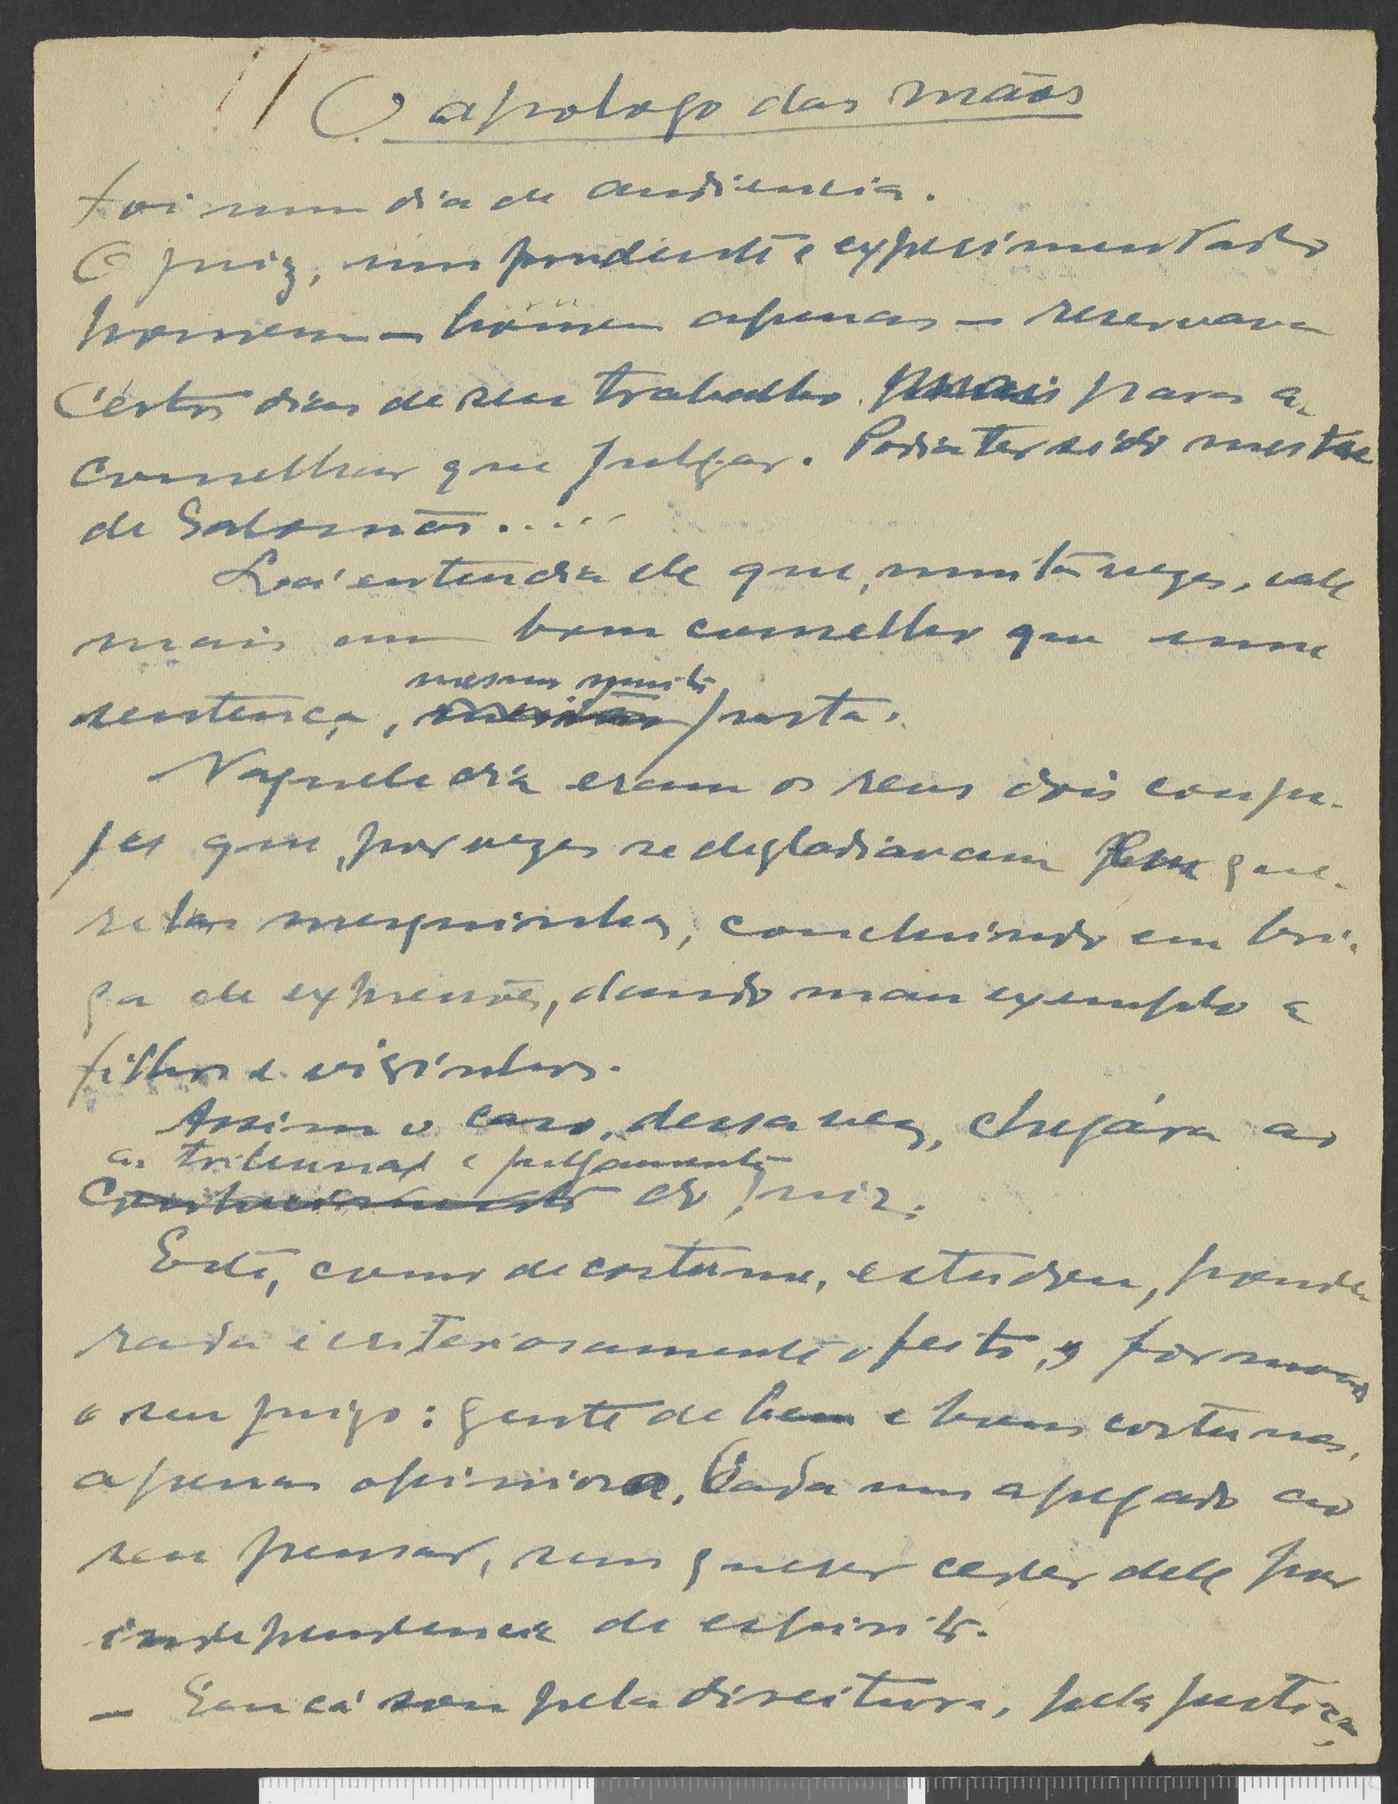 O apologo das mãos
Foi num dia de audiencia.
O juiz, um prudente e experimentado
homem – homem apenas – reservava
certos dias de seu trabalho mais para a-
conselhar que julgar. Podia ter sido mestre
de Salomão.....
Lá entendia ele que, muitas vezes, vale
mais um bom conselho que uma
mesmo muito
sentença, justa.
Naquele dia eram os seus dois conju-
jes que, por vezes se degladiavam em que-
relas mesquinhas, concluindo em bri-
ga de expressões, dando mau exemplo a
filhos e visinhos.
Assim o caso, dessa vez, chegára ao
ao tribunal e julgamento
conhecimento do juiz.
Este, como de costume, estudou, ponde-
rada e criteriosamente o feito, e formou
o seu juizo: gente de bem e bons costumes,
apenas opiniosa. Cada um apegado ao
seu pensar, sem querer ceder dele por
independencia de espirito.
– Eu cá sou pela direitura, pela justiça,